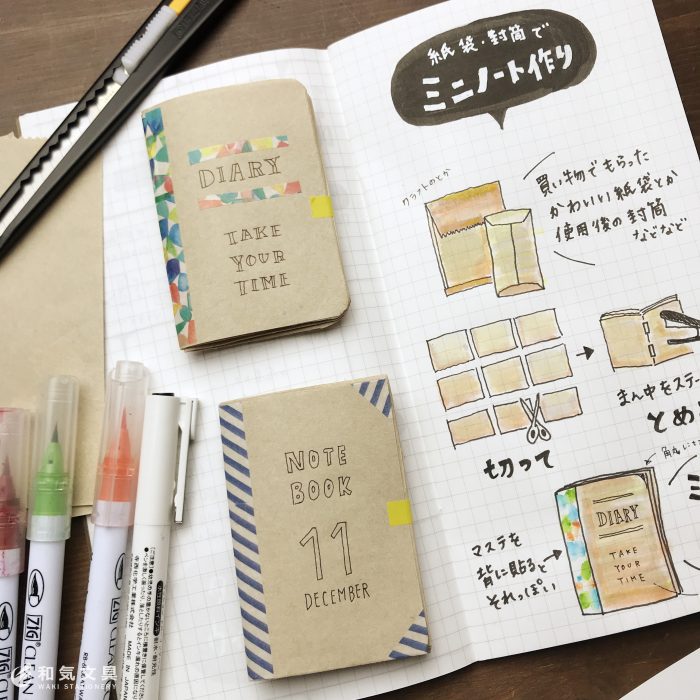 DIARY
TAKE
YOUR
TIME
NOTE
BOOK
11
DECEMBER
紙袋・封筒で
ミニノート作り
クラフトのとか
買い物でもらった
かわいい紙袋とか
使用後の封筒
などなど
切って
まん中をステー
とめ
マステを
背に貼ると
それっぽい
DIARY
TAKE
YOUR
TIME
ミ
ZIG
ZIG CLEAN
MADE IN JAPAN
和気文具
WAKI STATIONERY